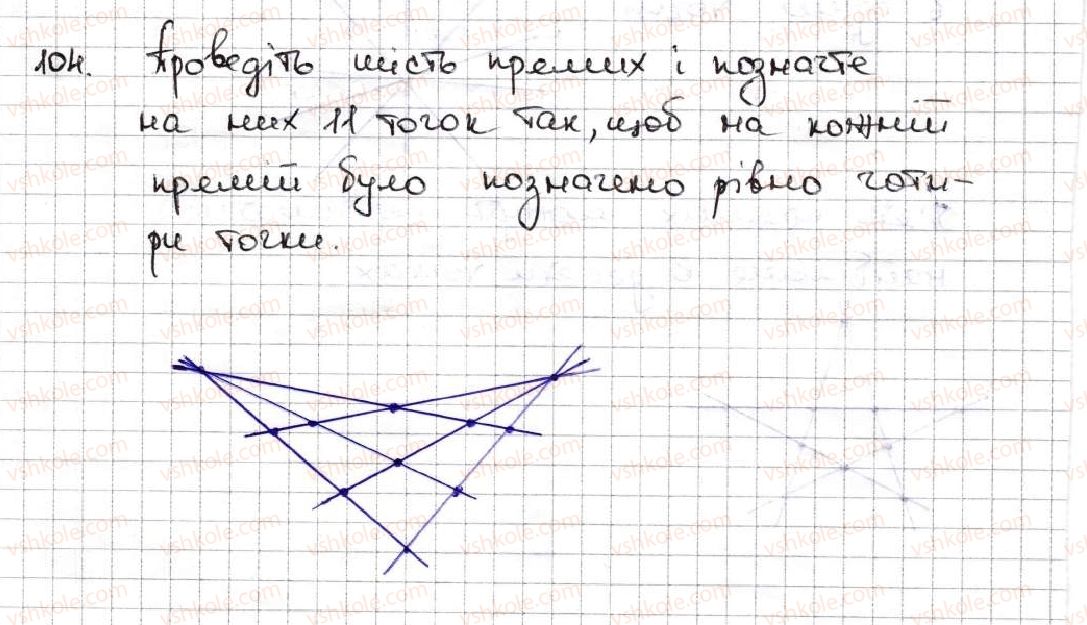 104. Проведіть шість прямих і позначте
на них 11 точок так, щоб на кожній
прямій було позначено рівно чоти-
ри точки.